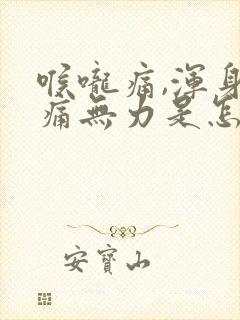 喉嚨痛,渾身
痛無力是怎
安寶山